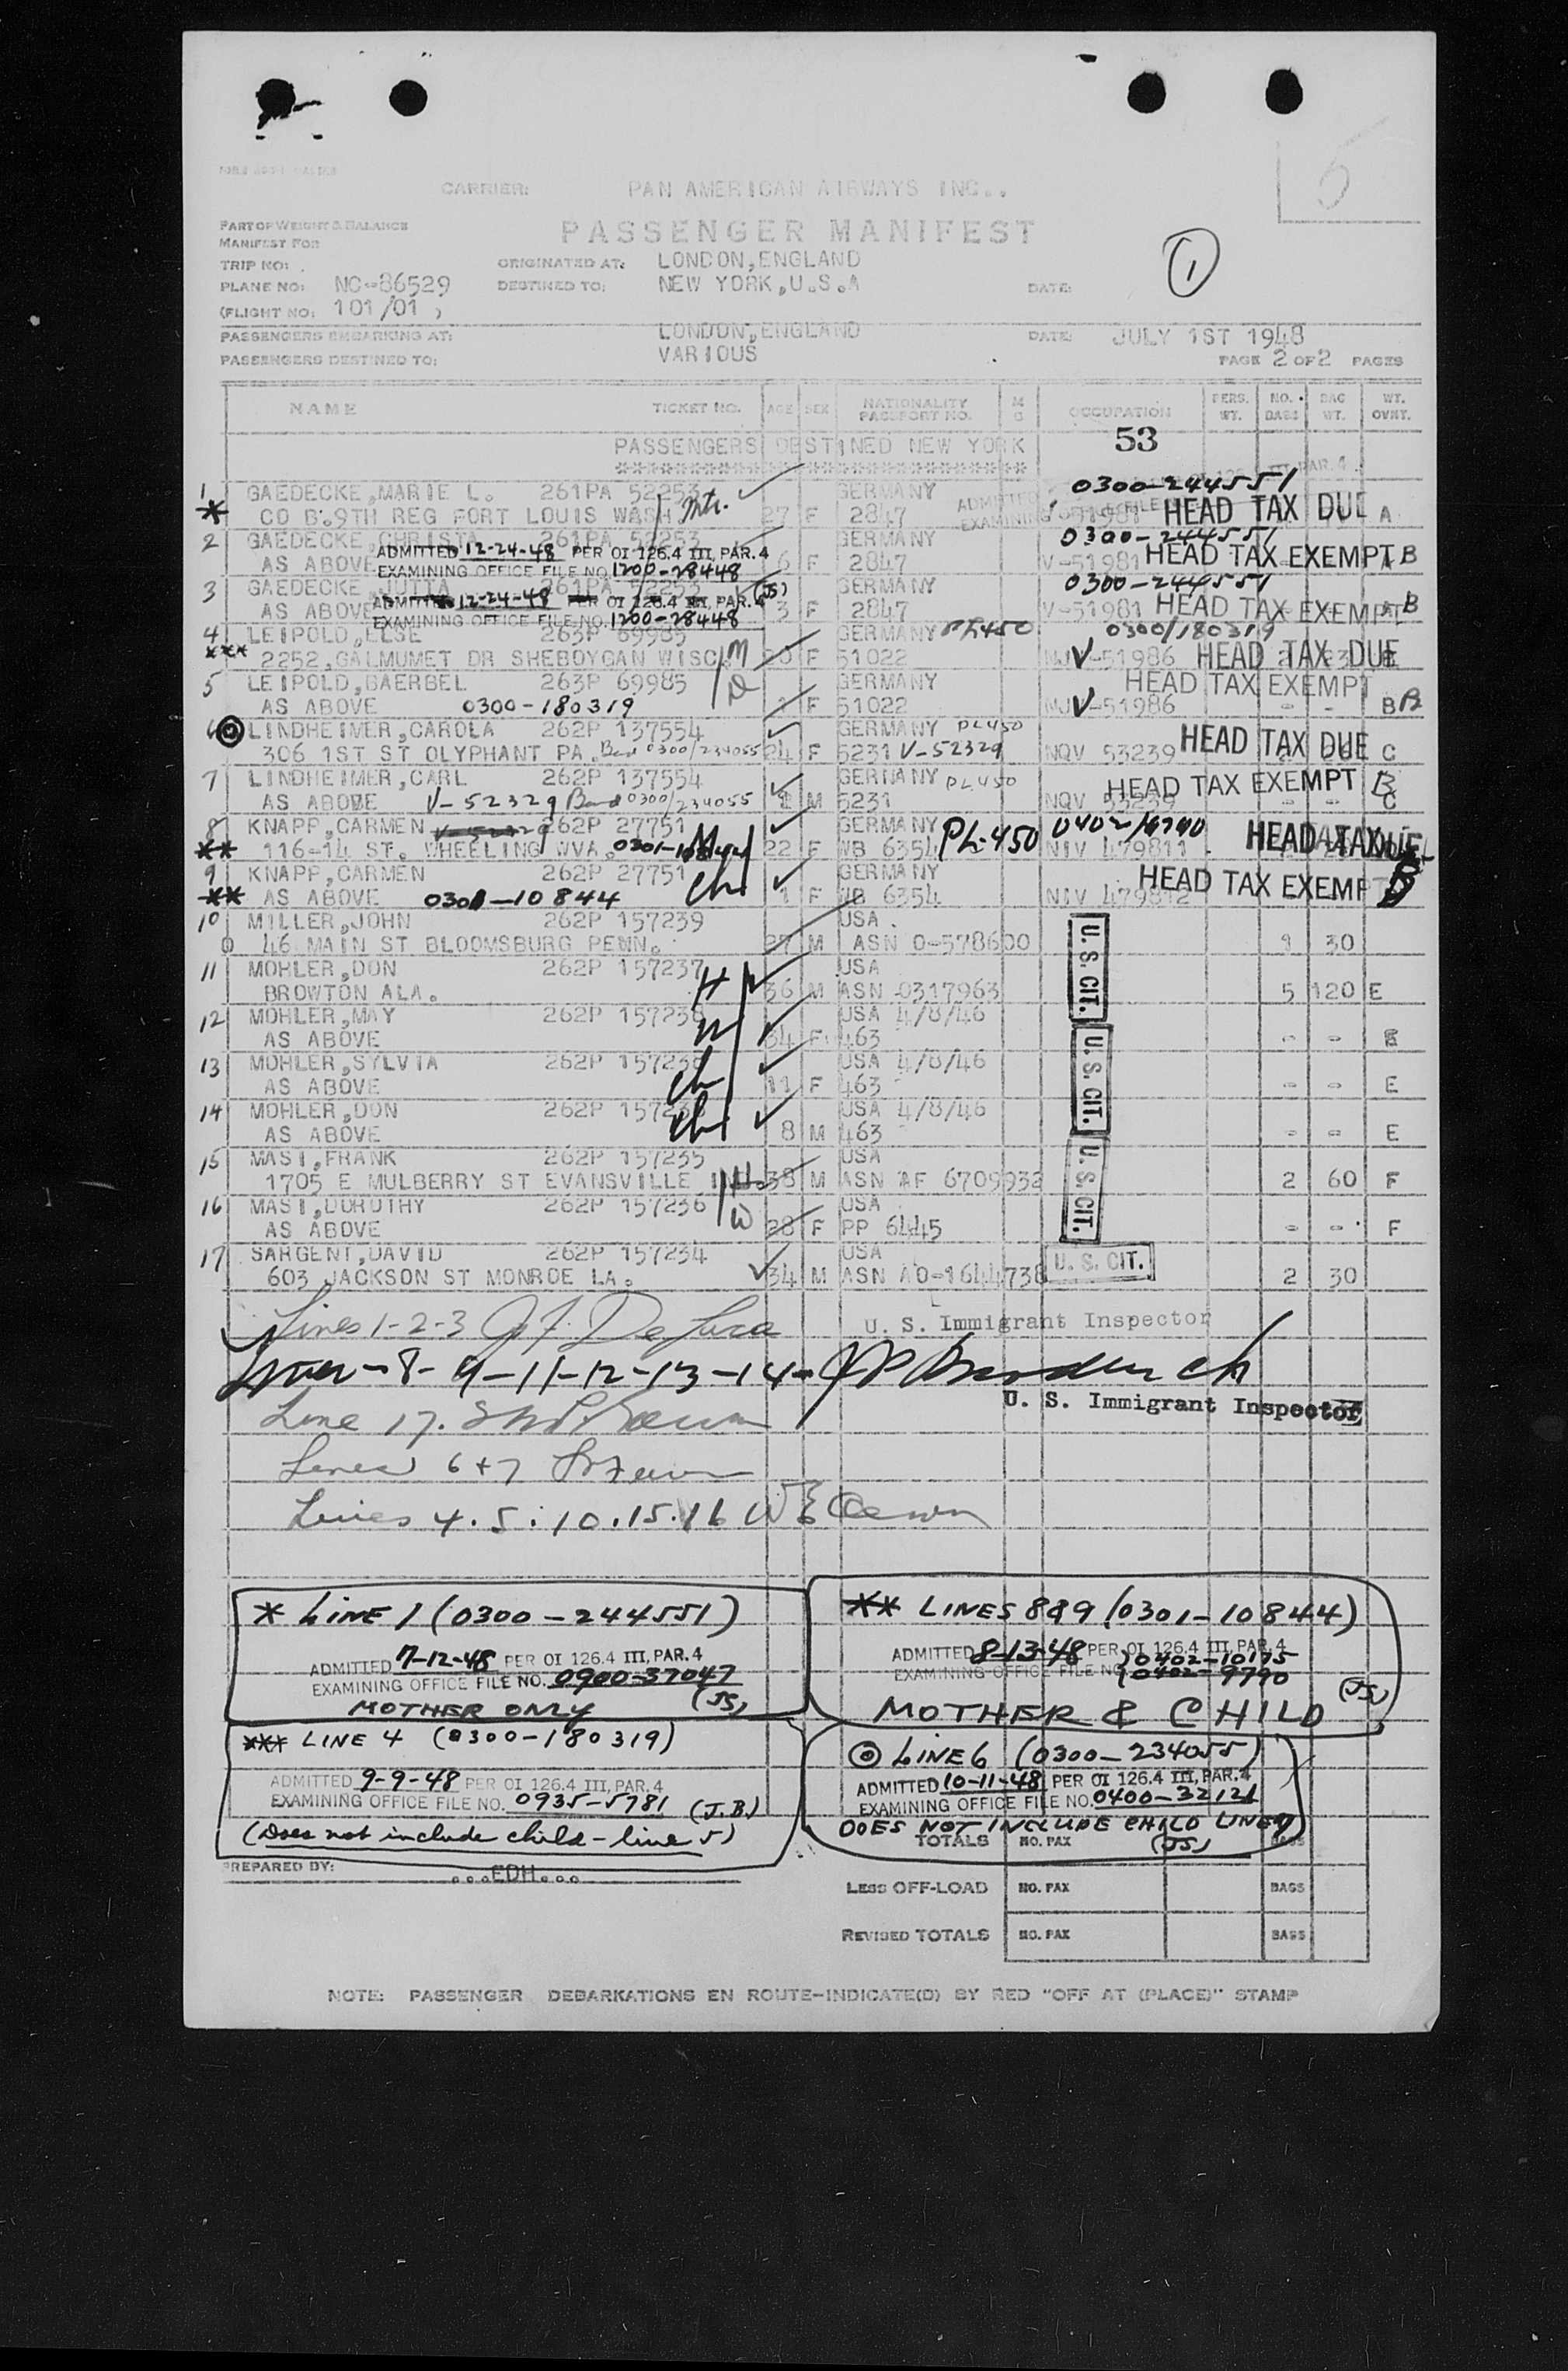 5
CARRIER: PAN AMERICAN AIRWAYS INC..
PART OF WEIGHT & BALANCE
MANIFEST FOR
PASSENGER MANIFEST
1
TRIP NO: ORIGINATED AT: LONDON,ENGLAND
PLANE NO: NC-86529 DESTINED TO: NEW YORK,U.S.A DATE:
(FLIGHT NO: 101/01 )
PASSENGERS EMBARKING AT: LONDON,ENGLAND DATE: JULY 1ST 1948
PASSENGERS DESTINED TO: VARIOUS PAGE 2 OF 2 PAGES
NAME TICKET NO. AGE SEX NATIONALITY PASSPORT NO. OCCUPATION PERS. WT. NO. BAGS BAG WT. WT. OVNT.
PASSENGERS DESTINED NEW YORK 53
1 GAEDECKE,MARIE L. 261PA 52253 GERMANY 0300-244551
* CO B.9TH REG FORT LOUIS WASH 27 F 2847 HEAD TAX DUE A
2 GAEDECKE,CHRISTA 261PA 52253 GERMANY 0300-244551
ADMITTED 12-24-48 PER OI 126.4 III, PAR. 4
AS ABOVE 6 F 2847 V-51981 HEAD TAX EXEMPT B
EXAMINING OFFICE FILE NO. 1200-28448
3 GAEDECKE,JUTTA 261PA 52253 (JS) GERMANY 0300-244551
ADMITTED 12-24-48 PER OI 126.4 III, PAR. 4
AS ABOVE 3 F 2847 V-51981 HEAD TAX EXEMPT B
EXAMINING OFFICE FILE NO. 1200-28448
4 LEIPOLD,ELSE 263P 69985 GERMANY PL450 0300/180319
*** 2252,GALMUMET DR SHEBOYGAN WISC M 20 F 51022 V-51986 HEAD TAX DUE
5 LEIPOLD,BAERBEL 263P 69985 GERMANY HEAD TAX EXEMPT
AS ABOVE 0300-180319 F 51022 V-51986 - - B B
6 LINDHEIMER,CAROLA 262P 137554 GERMANY PL450
306 1ST ST OLYPHANT PA. 0300/234055 24 F 5231 V-52329 NQV 53239 HEAD TAX DUE C
7 LINDHEIMER,CARL 262P 137554 GERMANY PL450 HEAD TAX EXEMPT B
AS ABOVE V-52329 0300/234055 M 5231 NQV 53239 - - C
8 KNAPP,CARMEN 262P 27751 GERMANY PL-450
** 116-14 ST. WHEELING WVA. 0301-10844 M 22 F WB 6354 NIV 479811 HEAD TAX DUE
9 KNAPP,CARMEN 262P 27751 ch GERMANY HEAD TAX EXEMPT B
** AS ABOVE 0301-10844 1 F WB 6354 NIV 479812
10 MILLER,JOHN 262P 157239 USA.
46 MAIN ST BLOOMSBURG PENN. 27 M ASN O-578600 U. S. CIT. 9 30
11 MOHLER,DON 262P 157237 H USA
BROWTON ALA. 36 M ASN 0317963 5 120 E
12 MOHLER,MAY 262P 157238 W USA 4/8/46
AS ABOVE 34 F 463 U. S. CIT. - - E
13 MOHLER,SYLVIA 262P 157238 ch USA 4/8/46
AS ABOVE 11 F 463 - - E
14 MOHLER,DON 262P 157238 ch USA 4/8/46
AS ABOVE 8 M 463 - - E
15 MASI,FRANK 262P 157235 USA
1705 E MULBERRY ST EVANSVILLE IND H 38 M ASN AF 6709932 U. S. CIT. 2 60 F
16 MASI,DOROTHY 262P 157236 W USA
AS ABOVE 28 F PP 6445 - - F
17 SARGENT,DAVID 262P 157234 USA
603 JACKSON ST MONROE LA. 34 M ASN AO-1644738 U. S. CIT. 2 30
Lines 1-2-3 U. S. Immigrant Inspector
Lines-8-9-11-12-13-14-
U. S. Immigrant Inspector
Line 17.
Lines 6+7
Lines 4.5.10.15.16
* LINE 1 (0300-244551)
ADMITTED 7-12-48 PER OI 126.4 III, PAR. 4
EXAMINING OFFICE FILE NO. 0900-37047
MOTHER ONLY (JS)
** LINES 8&9 (0301-10844)
ADMITTED 8-13-48 PER OI 126.4 III, PAR. 4
0402-10175
EXAMINING OFFICE FILE NO. 0402-9790
MOTHER & CHILD (JS)
*** LINE 4 (0300-180319)
ADMITTED 9-9-48 PER OI 126.4 III, PAR. 4
EXAMINING OFFICE FILE NO. 0935-5781 (J.B)
(Does not include child-line 5)
LINE 6 (0300-234055)
ADMITTED 10-11-48 PER OI 126.4 III, PAR. 4
EXAMINING OFFICE FILE NO. 0400-32121
DOES NOT INCLUDE CHILD LINE 7
(JS)
TOTALS NO. PAX BAGS
PREPARED BY: ...EDH...
LESS OFF-LOAD NO. PAX BAGS
REVISED TOTALS NO. PAX BAGS
NOTE: PASSENGER DEBARKATIONS EN ROUTE-INDICATE(D) BY RED "OFF AT (PLACE)" STAMP